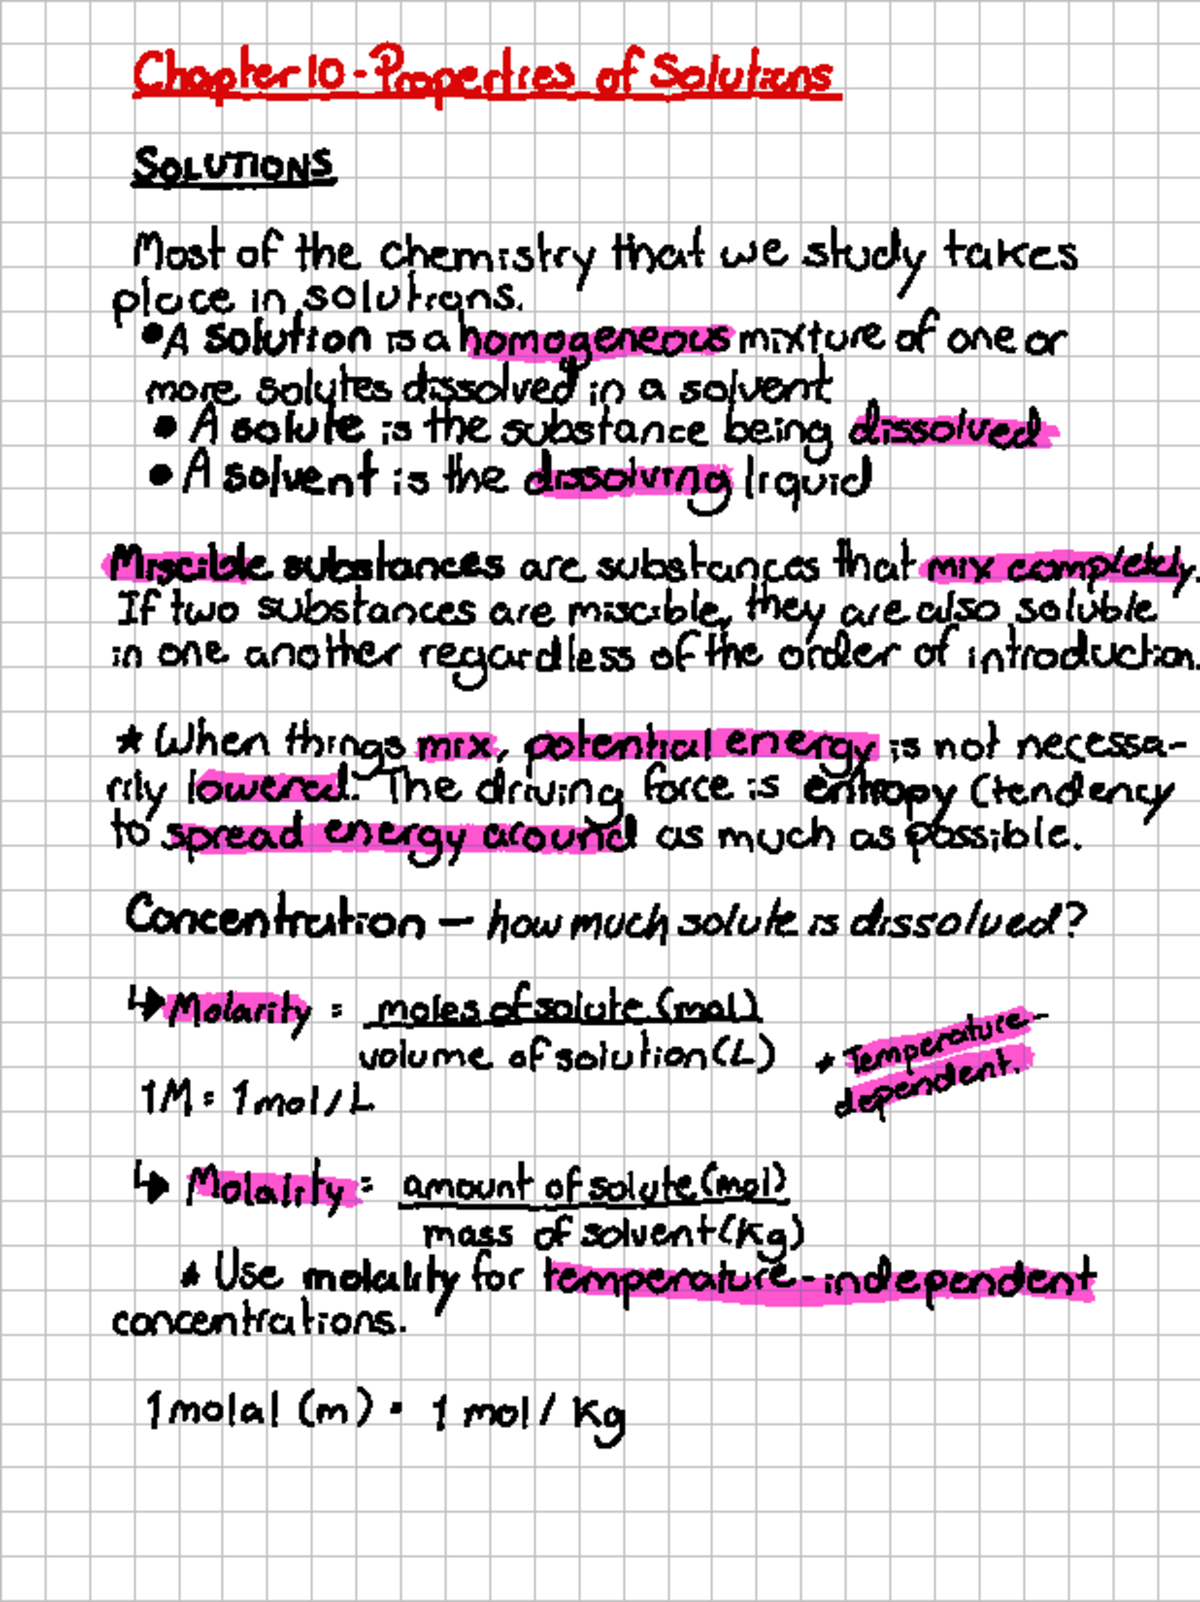 Chapter 10 - Properties of Solutions
SOLUTIONS
Most of the chemistry that we study takes
place in solutions.
• A solution is a homogeneous mixture of one or
more solutes dissolved in a solvent
• A solute is the substance being dissolved
• A solvent is the dissolving liquid
Miscible substances are substances that mix completely.
If two substances are miscible, they are also soluble
in one another regardless of the order of introduction.
* When things mix, potential energy is not necessa-
rily lowered. The driving force is entropy (tendency
to spread energy around as much as possible.
Concentration — how much solute is dissolved?
↳ Molarity = moles of solute (mol)
volume of solution (L)
* Temperature-
dependent.
1M = 1 mol/L
↳ Molality = amount of solute (mol)
mass of solvent (kg)
* Use molality for temperature-independent
concentrations.
1 molal (m) = 1 mol / kg